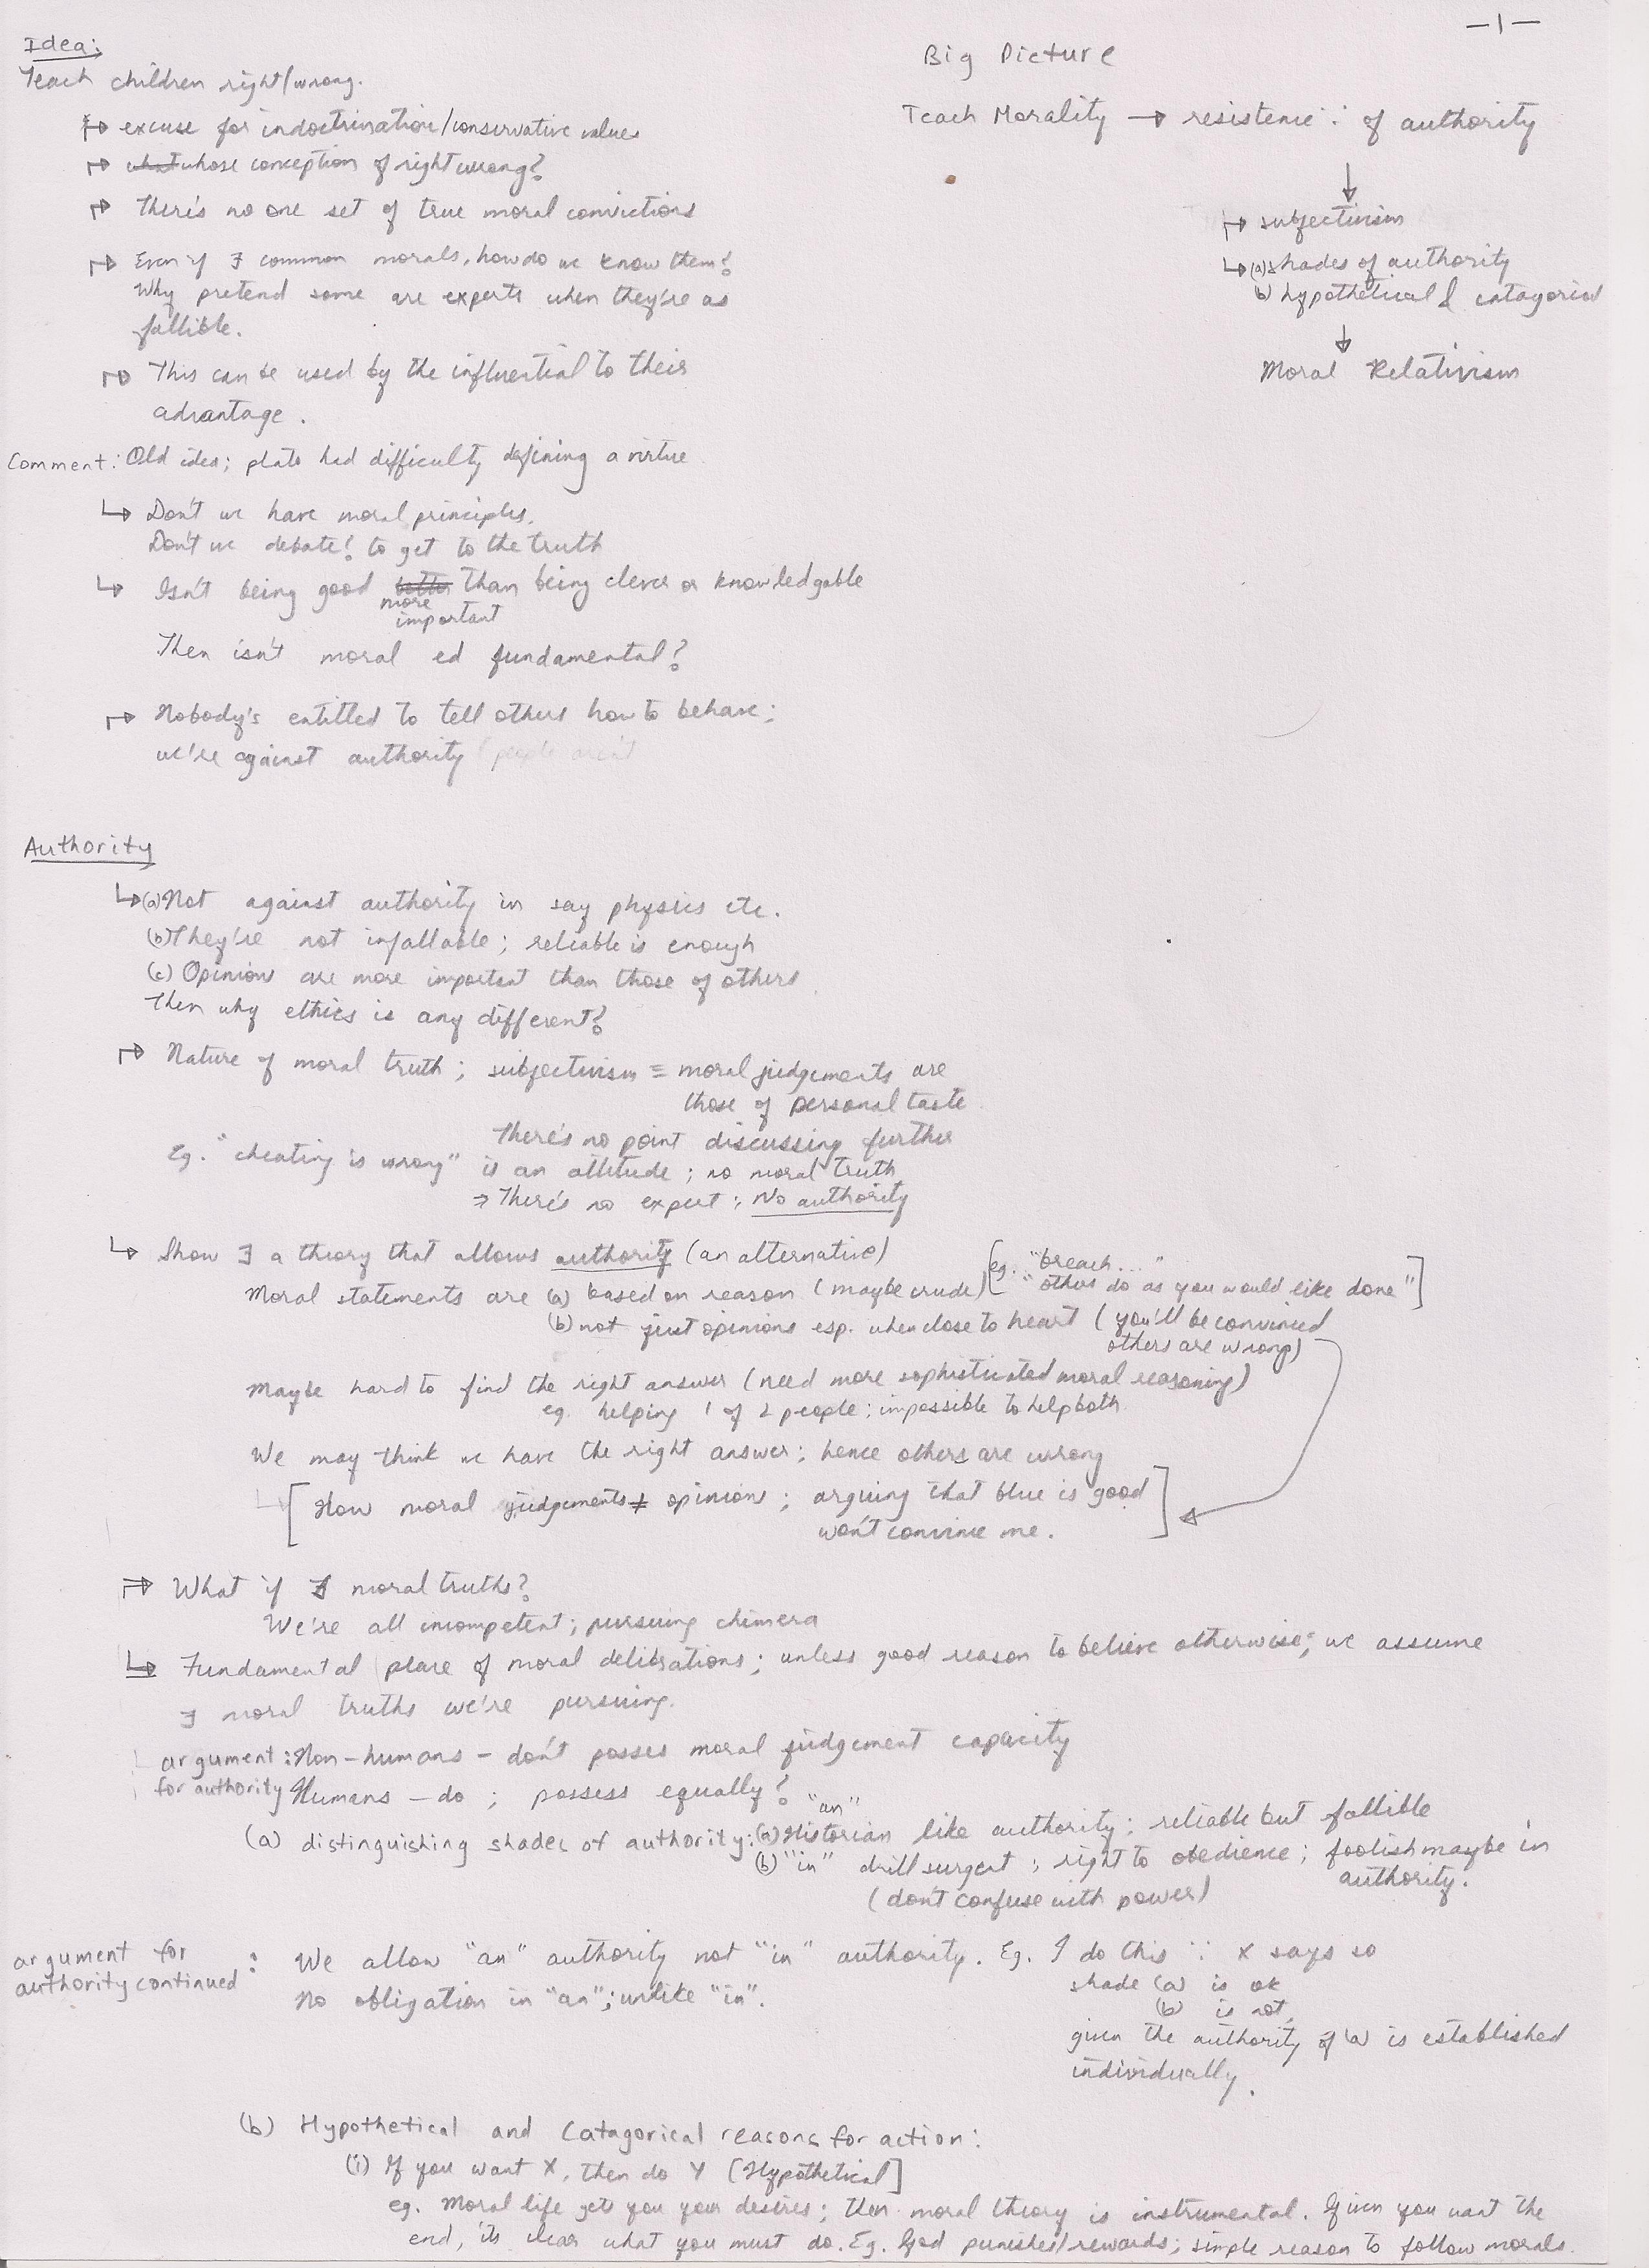 —1—
Idea:
Teach children right/wrong.
excuse for indoctrination/conservative values
what whose conception of right wrong?
There's no one set of true moral convictions
Even if ∃ common morals, how do we know them?
Why pretend some are experts when they're as
fallible.
This can be used by the influential to their
advantage.
Comment: Old idea; plato had difficulty defining a virtue
Don't we have moral principles.
Don't we debate? to get to the truth
Isn't being good better than being clever or knowledgable
more
important
Then isn't moral ed fundamental?
Nobody's entitled to tell others how to behave;
we're against authority (people aren't
Big Picture
Teach Morality → resistence ∵ of authority
↓
subjectivism
(a) shades of authority
(b) hypothetical & catagorical
↓
Moral Relativism
Authority
(a) Not against authority in say physics etc.
(b) They're not infallable; reliable is enough
(c) Opinions are more important than those of others.
Then why ethics is any different?
Nature of moral truth; subjectivism ≡ moral judgements are
those of personal taste
There's no point discussing further
Eg. "cheating is wrong" is an attitude; no moral truth
⇒ There's no expert ∴ No authority
Show ∃ a theory that allows authority (an alternative)
Moral statements are (a) based on reason (maybe crude) [eg. "breach..."
"others do as you would like done"]
(b) not just opinions esp. when close to heart (you'll be convinced
others are wrong)
Maybe hard to find the right answer (need more sophisticated moral reasoning)
eg. helping 1 of 2 people; impossible to help both.
We may think we have the right answer; hence others are wrong
[How moral judgements ≠ opinions; arguing that blue is good
won't convince me.]
What if ∄ moral truths?
We're all incompetent; pursuing chimera
Fundamental place of moral deliberations; unless good reason to believe otherwise; we assume
∃ moral truths we're pursuing.
argument: Non-humans - don't posses moral judgement capacity
for authority Humans - do; possess equally?
(a) distinguishing shades of authority: (a) "an" Historian like authority; reliable but fallible
(b) "in" drill surgent; right to obedience; foolish maybe in
authority.
(don't confuse with power)
argument for
authority continued : We allow "an" authority not "in" authority. Eg. I do this ∵ X says so
No obligation in "an"; unlike "in".
shade (a) is ok
(b) is not,
given the authority of (a) is established
individually.
(b) Hypothetical and Catagorical reasons for action:
(i) If you want X, then do Y [Hypothetical]
eg. Moral life gets you your desires; then moral theory is instrumental. Given you want the
end, its clear what you must do. Eg. God punishes/rewards; simple reason to follow morals.